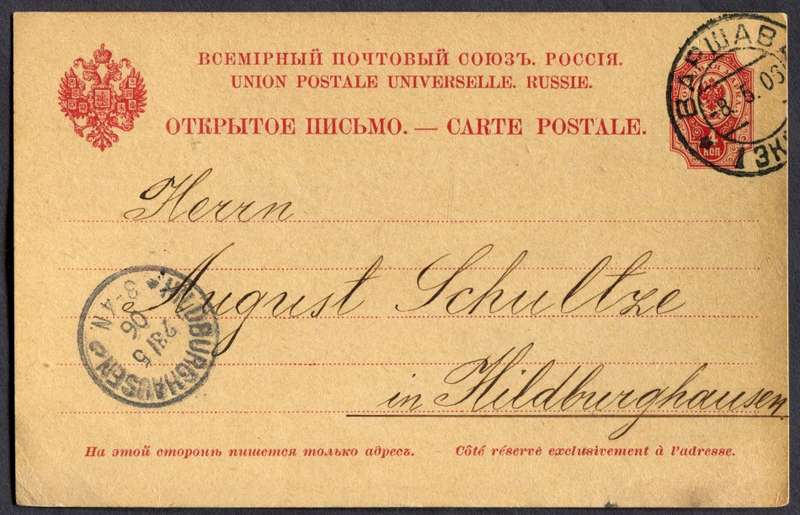 ВСЕМІРНЫЙ ПОЧТОВЫЙ СОЮЗЪ. РОССІЯ.
UNION POSTALE UNIVERSELLE. RUSSIE.
ОТКРЫТОЕ ПИСЬМО. — CARTE POSTALE.
ВАРШАВА
8.5.06
КОП
Herrn
August Schultze
in Hildburghausen
HILDBURGHAUSEN
06
3-4 N
На этой сторонѣ пишется только адресъ. Côté réservé exclusivement à l'adresse.